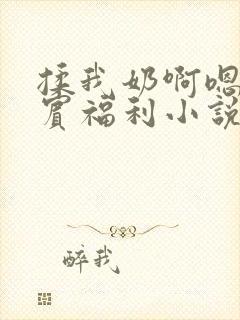 揉我奶啊嗯
賓福利小说
醉我